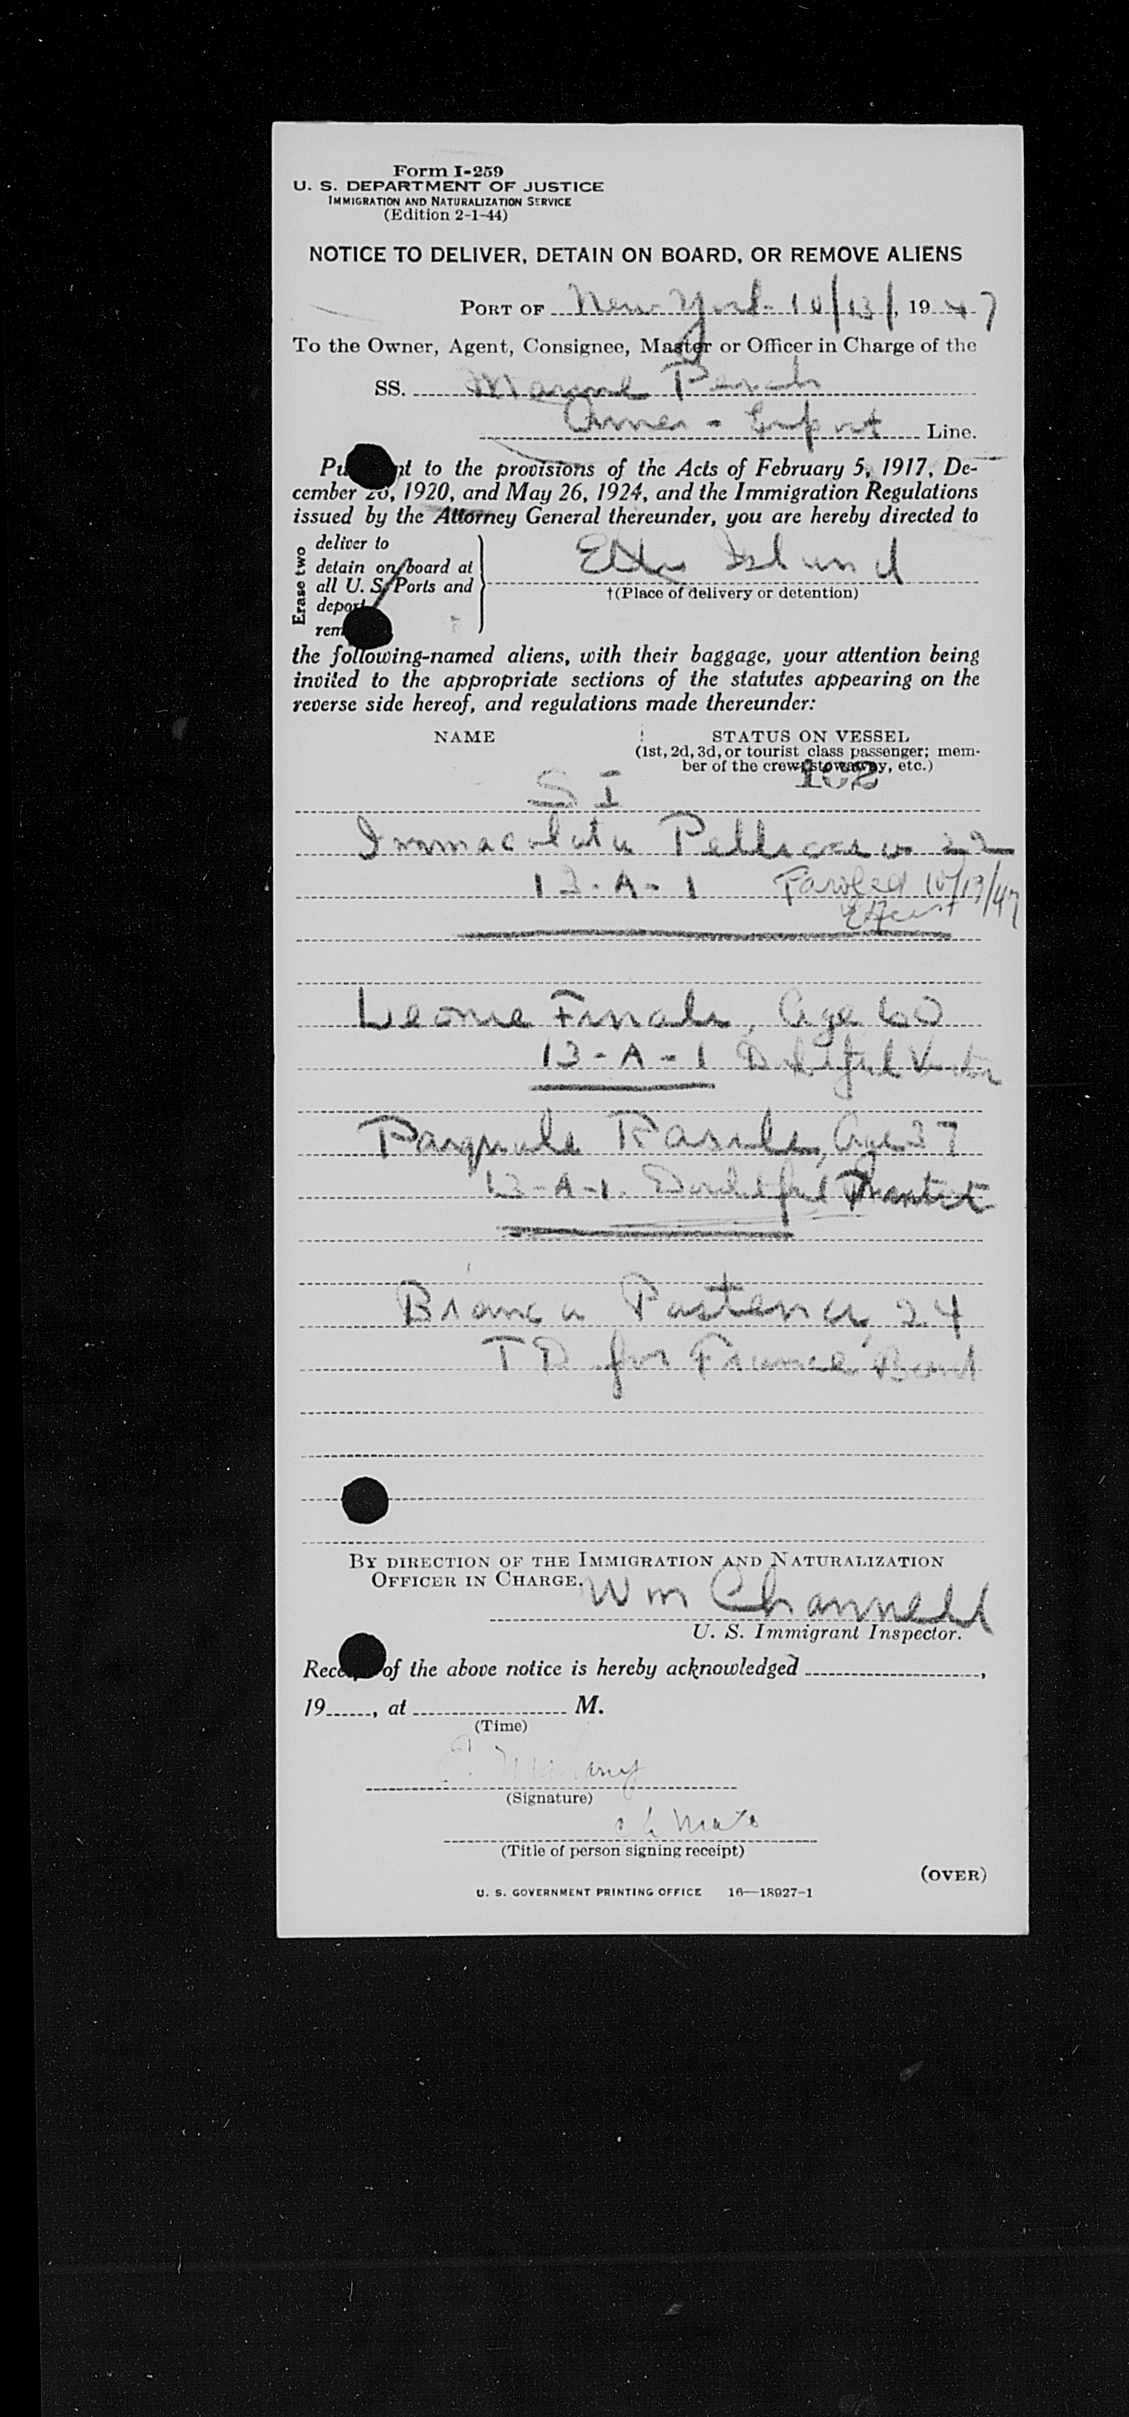 Form I-259
U. S. DEPARTMENT OF JUSTICE
IMMIGRATION AND NATURALIZATION SERVICE
(Edition 2-1-44)
NOTICE TO DELIVER, DETAIN ON BOARD, OR REMOVE ALIENS
PORT OF New York 10/13/, 1947
To the Owner, Agent, Consignee, Master or Officer in Charge of the
SS. Marine Perch
Amer - Export Line.
Pu nt to the provisions of the Acts of February 5, 1917, De-
cember 26, 1920, and May 26, 1924, and the Immigration Regulations
issued by the Attorney General thereunder, you are hereby directed to
Erase two
deliver to
detain on board at
all U. S. Ports and
deport
rem
Ellis Island
†(Place of delivery or detention)
the following-named aliens, with their baggage, your attention being
invited to the appropriate sections of the statutes appearing on the
reverse side hereof, and regulations made thereunder:
NAME
STATUS ON VESSEL
(1st, 2d, 3d, or tourist class passenger; mem-
ber of the crew, stowaway, etc.)
102
S I
Immaculata 22
13-A-1 Paroled 10/13/47
Leone Finale, Age 60
13-A-1 Doubtful Visitor
Pasquale Rasile, Age 37
13-A-1. Doubtful
Bianca Pastena, 24
T D for France Bond
BY DIRECTION OF THE IMMIGRATION AND NATURALIZATION
OFFICER IN CHARGE.
Wm Channell
U. S. Immigrant Inspector.
Rece of the above notice is hereby acknowledged ,
19 , at M.
(Time)
(Signature)
Mate
(Title of person signing receipt)
(OVER)
U. S. GOVERNMENT PRINTING OFFICE 16—18927-1